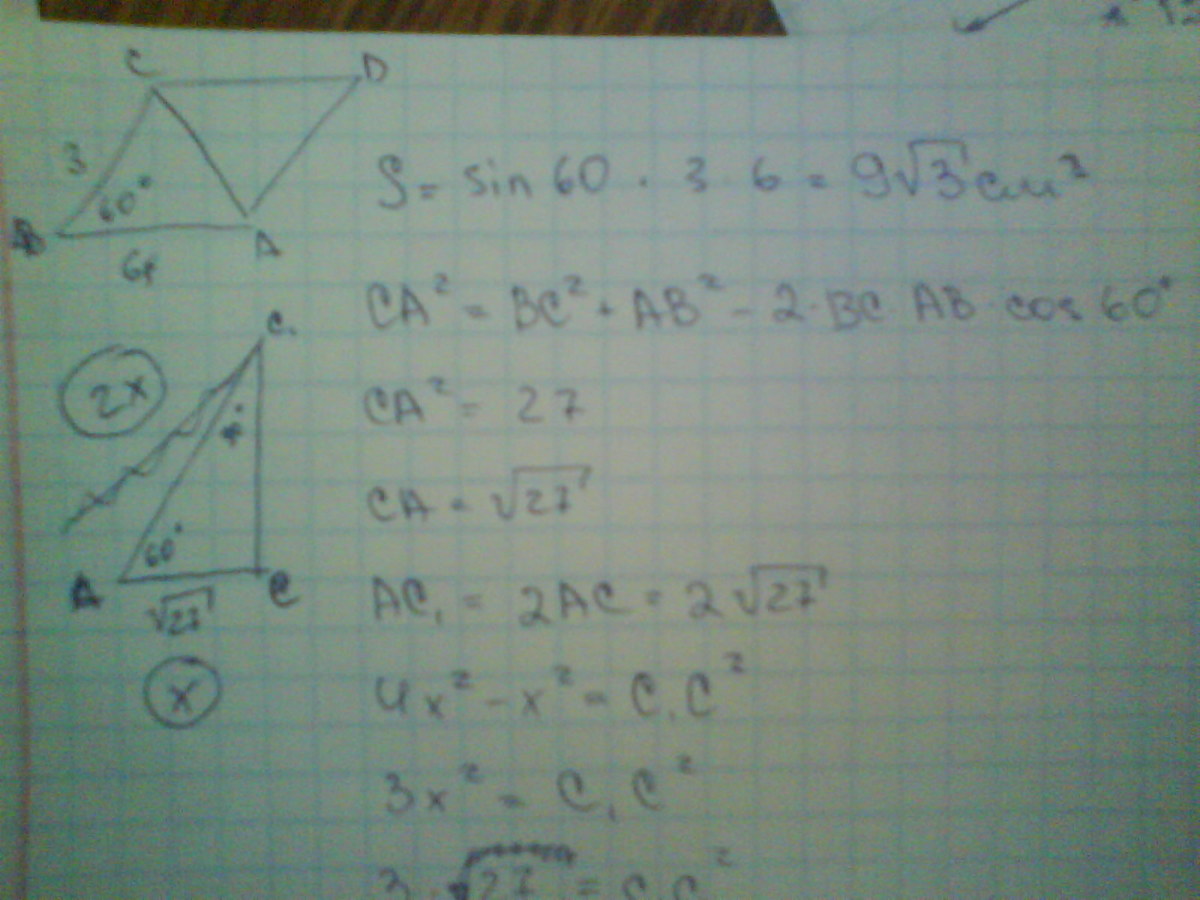 C D
3 60°
B 6 A
S = sin 60 · 3 6 = 9√3 см²
CA² = BC² + AB² - 2·BC AB cos 60°
C₁
2x
CA² = 27
CA = √27
60°
A C
√27
AC₁ = 2AC = 2√27
x
4x² - x² = C₁C²
3x² = C₁C²
3 · √27 = C₁C²